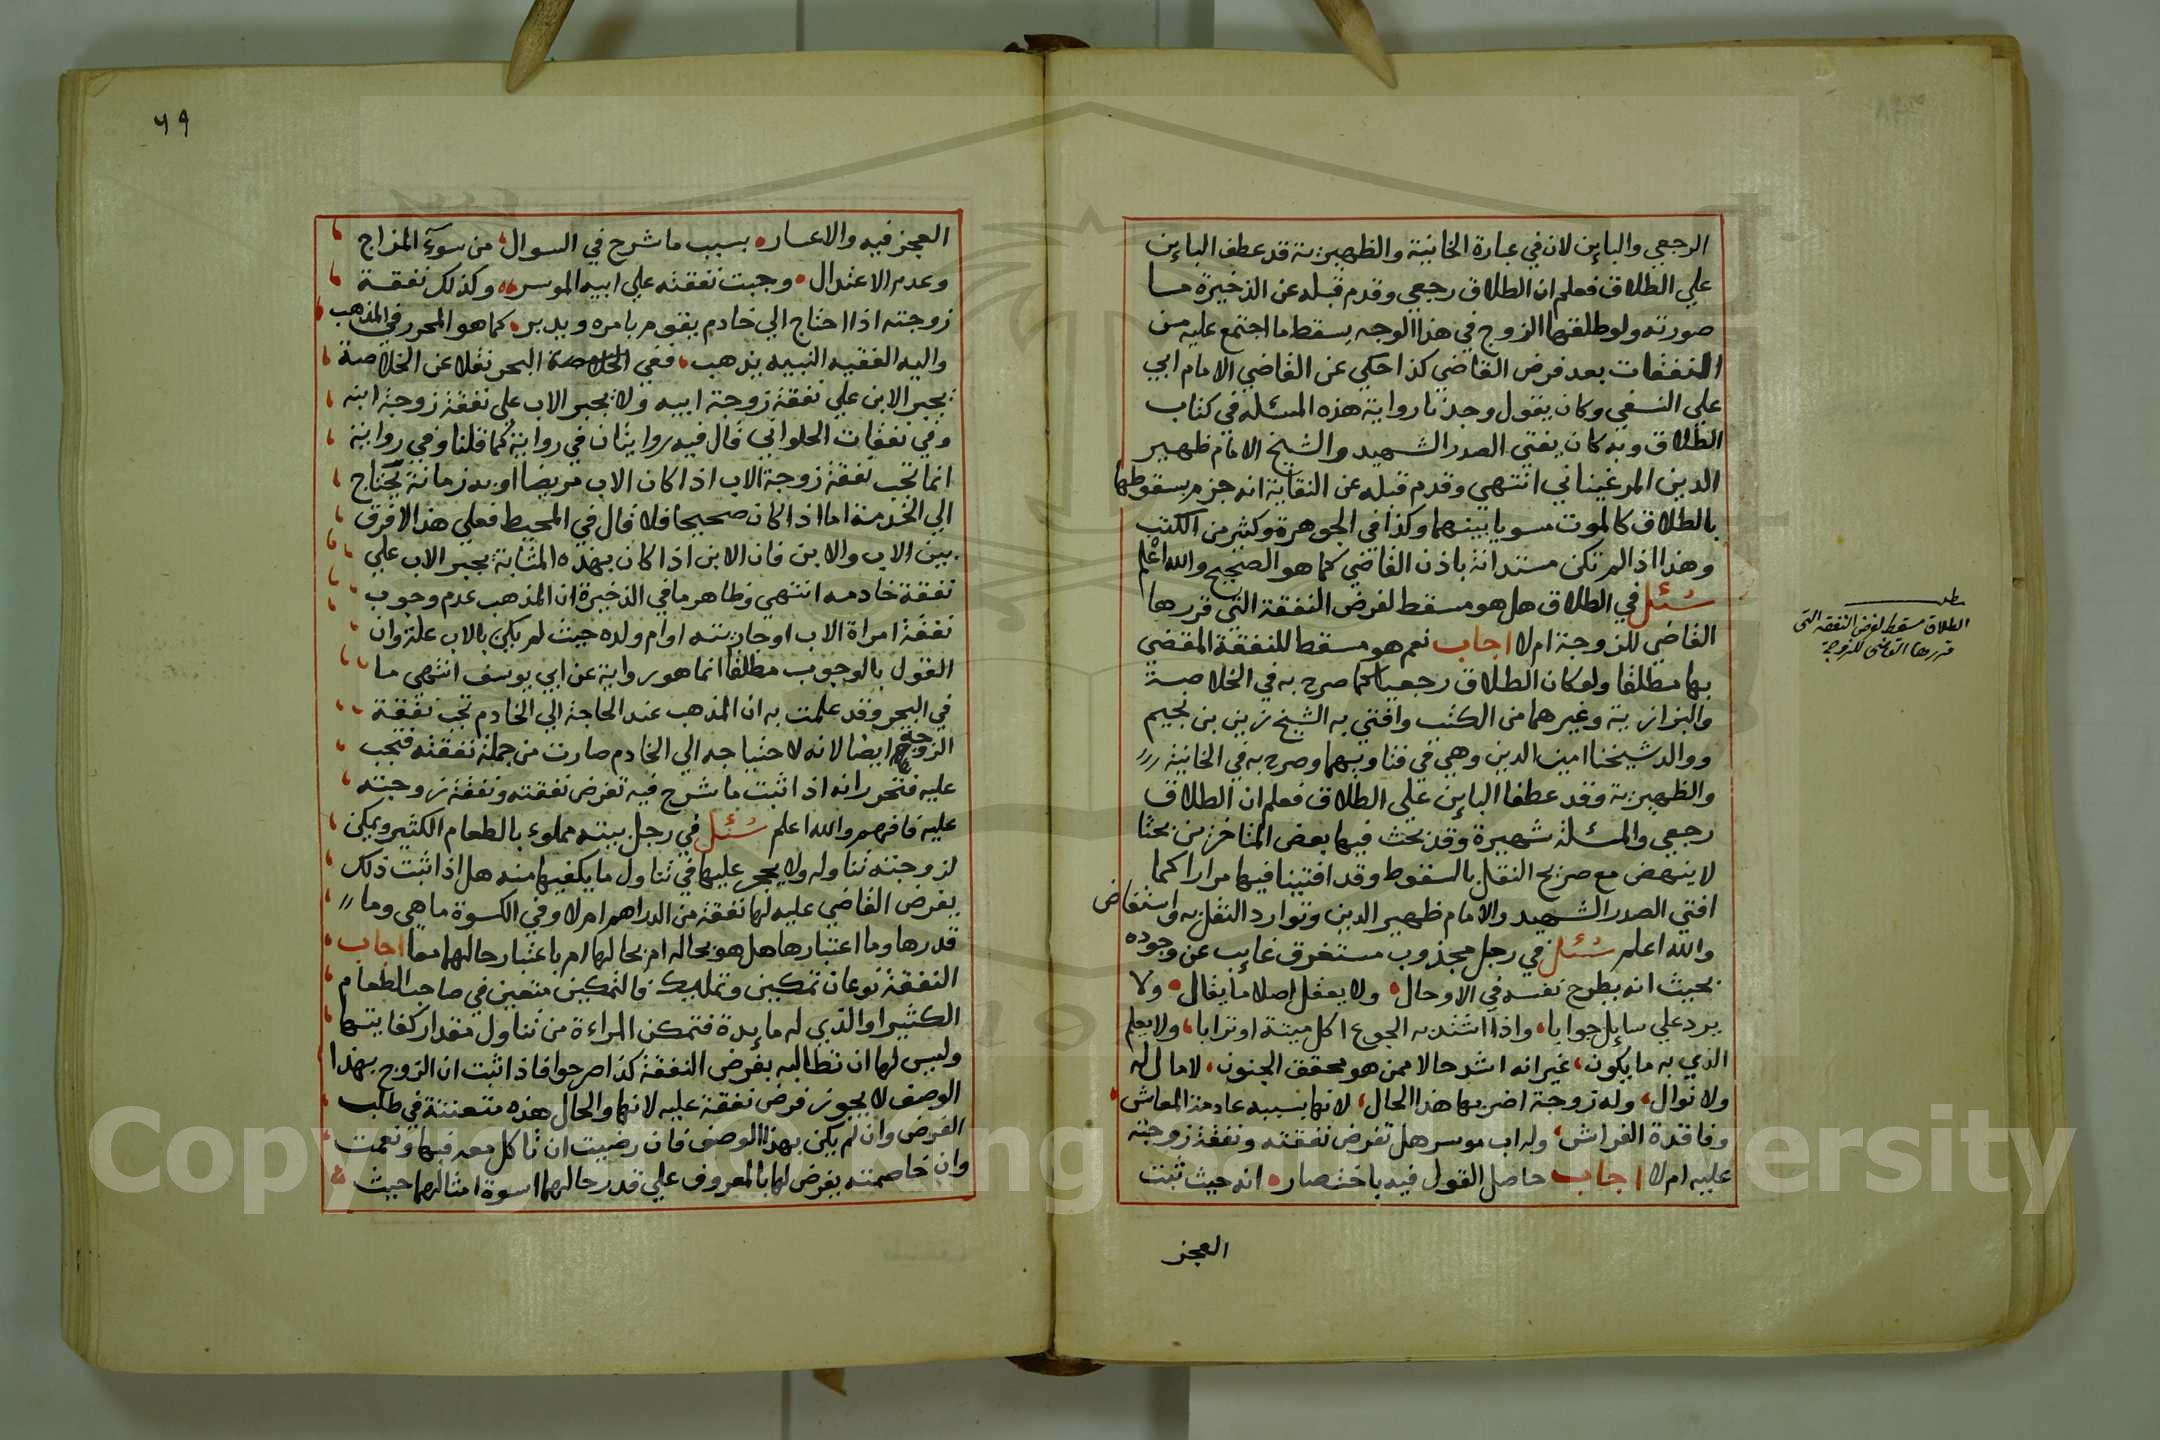 الرجعي والباين لان في عبارة الخانية والظهيرية قد عطف الباين
علي الطلاق فعلم ان الطلاق رجعي وقدم قبله عن الذخيرة ما
صورته ولو طلقها الزوج في هذا الوجه يسقط ما اجتمع عليه من
النفقات بعد فرض القاضي كذا حكي عن القاضي الامام ابي
علي النسفي وكان يقول وجدنا رواية هذه المسئلة في كتاب
الطلاق وبه كان يفتي الصدر الشهيد والشيخ الامام ظهير
الدين المرغيناني انتهي وقدم قبله عن النقاية انه جزم بسقوطها
بالطلاق كالموت سويا بينهما وكذا في الجوهرة وكثير من الكتب
وهذا اذا لم تكن مستدانة باذن القاضي كما هو الصحيح والله اعلم
سئل في الطلاق هل هو مسقط لفرض النفقة التي قررها
القاضي للزوجة ام لا اجاب نعم هو مسقط للنفقة المقضي
بها مطلقا ولو كان الطلاق رجعيا كما صرح به في الخلاصة
والبزازية وغيرهما من الكتب وافتي به الشيخ زين بن نجيم
ووالد شيخنا امين الدين وهي في فتاويهما وصرح به في الخانية
والظهيرية وقد عطفا الباين علي الطلاق فعلم ان الطلاق
رجعي والمسئلة شهيرة وقد بحث فيها بعض المتاخرين بحثا
لا ينهض مع صريح النقل بالسقوط وقد افتينا فيها مرارا كما
افتي الصدر الشهيد والامام ظهير الدين وتوارد النقل به واستفاض
والله اعلم سئل في رجل مجذوب مستغرق غايب عن وجوده
بحيث انه يطرح نفسه في الاوحال ولا يعقل اصلا ما يقال ولا
يرد علي سايل جوابا واذا اشتد به الجوع اكل ميتة او ترابا ولا يعلم
الذي به ما يكون غير انه اشد حالا ممن هو محقق الجنون لا مال له
ولا نوال وله زوجة اضر بها هذا الحال لانها بسببه عادمة المعاش
وفاقدة الفراش وله اب موسر هل تفرض نفقته ونفقة زوجته
عليه ام لا اجاب حاصل القول فيه باختصار انه حيث ثبت
العجز
مطلب
الطلاق مسقط لفرض النفقة التي
قررها القاضي للزوجة
٦٩
العجز فيه والاعسار بسبب ما شرح في السوال من سوء المزاج
وعدم الاعتدال وجبت نفقته علي ابيه الموسر وكذلك نفقة
زوجته اذا احتاج الي خادم يقوم بامره ويدبر كما هو المحرر في المذهب
واليه الفقيه النبيه يذهب ففي البحر نقلا عن الخلاصة
يجبر الابن علي نفقة زوجة ابيه ولا يجبر الاب علي نفقة زوجة ابنه
وفي نفقات الحلواني قال فيه روايتان في رواية كما قلنا وفي رواية
انما تجب نفقة زوجة الاب اذا كان الاب مريضا او به زمانة يحتاج
الي الخدمة اما اذا كان صحيحا فلا قال في المحيط فعلي هذا لا فرق
بين الاب والابن فان الابن اذا كان بهذه المثابة يجبر الاب علي
نفقة خادمه انتهي وظاهر ما في الذخيرة ان المذهب عدم وجوب
نفقة امراة الاب او جاريته او ام ولده حيث لم يكن بالاب علة وان
القول بالوجوب مطلقا انما هو رواية عن ابي يوسف انتهي ما
في البحر وقد علمت به ان المذهب عند الحاجة الي الخادم تجب نفقة
الزوجة ايضا لانه لاحتياجه الي الخادم صارت من جملة نفقته فتجب
عليه فتحرر انه اذا ثبت ما شرح فيه تفرض نفقته ونفقة زوجته
عليه فافهم والله اعلم سئل في رجل بيته مملوء بالطعام الكثير ويمكن
لزوجته تناوله ولا يحجر عليها في تناول ما يكفيها منه هل اذا ثبت ذلك
يفرض القاضي عليه لها نفقة من الدراهم ام لا وفي الكسوة ما هي وما
قدرها وما اعتبارها هل هو بحاله ام بحالها ام باعتبار حالهما معا اجاب
النفقة نوعان تمكين وتمليك فالتمكين متعين في صاحب الطعام
الكثير او الذي له مايدة فتمكن المراءة من تناول مقدار كفايتها
وليس لها ان تطالبه بفرض النفقة كذا صرحوا فاذا ثبت ان الزوج بهذا
الوصف لا يجوز فرض نفقة عليه لانها والحال هذه متعنتة في طلب
الفرض وان لم يكن بهذا الوصف فان رضيت ان تاكل معه فبها ونعمت
وان خاصمته يفرض لها بالمعروف علي قدر حالهما اسوة امثالهما حيث
Copyright © King Saud University